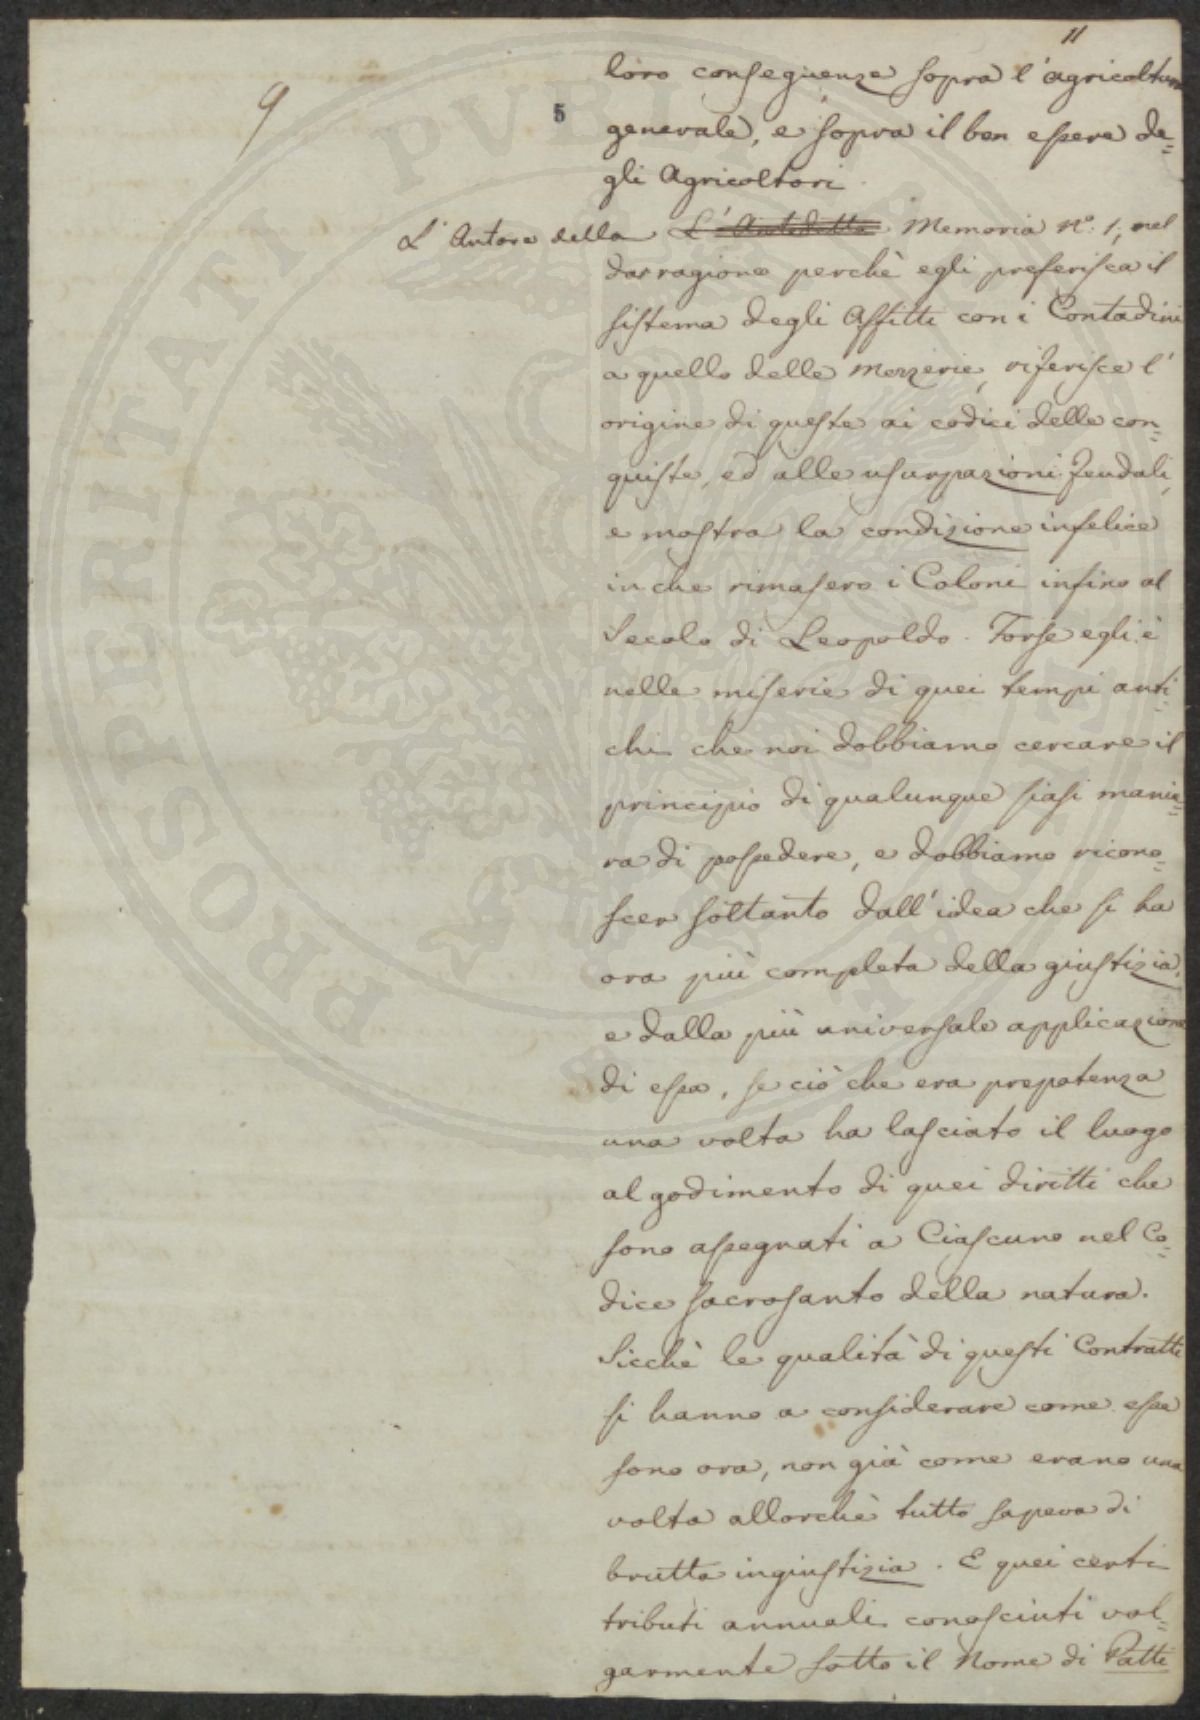 11
9
5
loro conseguenze sopra l'agricoltura
generale, e sopra il ben essere de=
gli Agricoltori.
L'Autore della L'Antedetta Memoria N.° 1, nel
dar ragione perchè egli preferisca il
sistema degli Affitti con i Contadini
a quello delle Mezzerie, riferisce l'
origine di queste ai codici delle con=
quiste, ed alle usurpazioni feudali,
e mostra la condizione infelice
in che rimasero i Coloni infino al
Secolo di Leopoldo. Forse egli è
nelle miserie di quei tempi anti=
chi che noi dobbiamo cercare il
principio di qualunque siasi manie=
ra di possedere, e dobbiamo ricono=
scer soltanto dall'idea che si ha
ora più completa della giustizia,
e dalla più universale applicazione
di essa, se ciò che era prepotenza
una volta ha lasciato il luogo
al godimento di quei diritti che
sono assegnati a Ciascuno nel Co=
dice sacrosanto della natura.
Sicchè le qualità di questi Contratti
si hanno a considerare come esse
sono ora, non già come erano una
volta allorchè tutto sapeva di
brutta ingiustizia. E quei certi
tributi annuali conosciuti vol=
garmente sotto il Nome di Patti
PROSPERITATI PUBLICAE